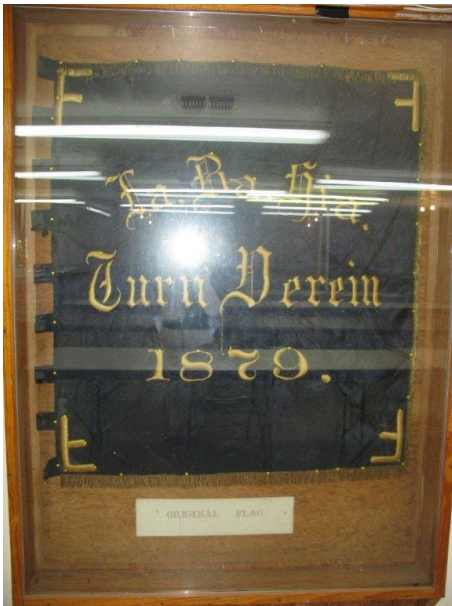 La. Ba. Hia.
Turn Verein
1879.
ORIGINAL FLAG